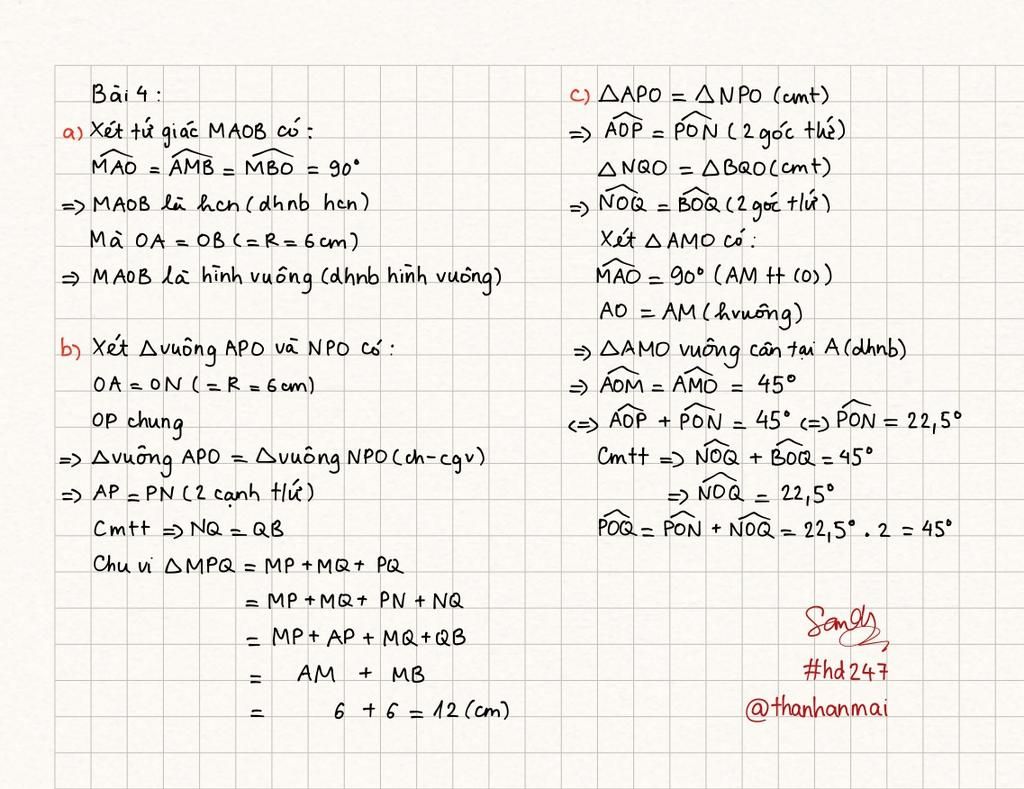 Bài 4 :
a) Xét tứ giác MAOB có :
M̂AO = ÂMB = M̂BO = 90°
=> MAOB là hcn (dhnb hcn)
Mà OA = OB (= R = 6cm)
=> MAOB là hình vuông (dhnb hình vuông)
b) Xét △vuông APO và NPO có :
OA = ON (= R = 6cm)
OP chung
=> △vuông APO = △vuông NPO (ch-cgv)
=> AP = PN (2 cạnh t/ứ)
Cmtt => NQ = QB
Chu vi △MPQ = MP + MQ + PQ
= MP + MQ + PN + NQ
= MP + AP + MQ + QB
= AM + MB
= 6 + 6 = 12 (cm)
c) △APO = △NPO (cmt)
=> ÂOP = P̂ON (2 góc t/ứ)
△NQO = △BQO (cmt)
=> N̂OQ = B̂OQ (2 góc t/ứ)
Xét △AMO có :
M̂AO = 90° (AM tt (O))
AO = AM (hvuông)
=> △AMO vuông cân tại A (dhnb)
=> ÂOM = ÂMO = 45°
<=> ÂOP + P̂ON = 45° <=> P̂ON = 22,5°
Cmtt => N̂OQ + B̂OQ = 45°
=> N̂OQ = 22,5°
P̂OQ = P̂ON + N̂OQ = 22,5° . 2 = 45°
#hd247
@thanhanmai